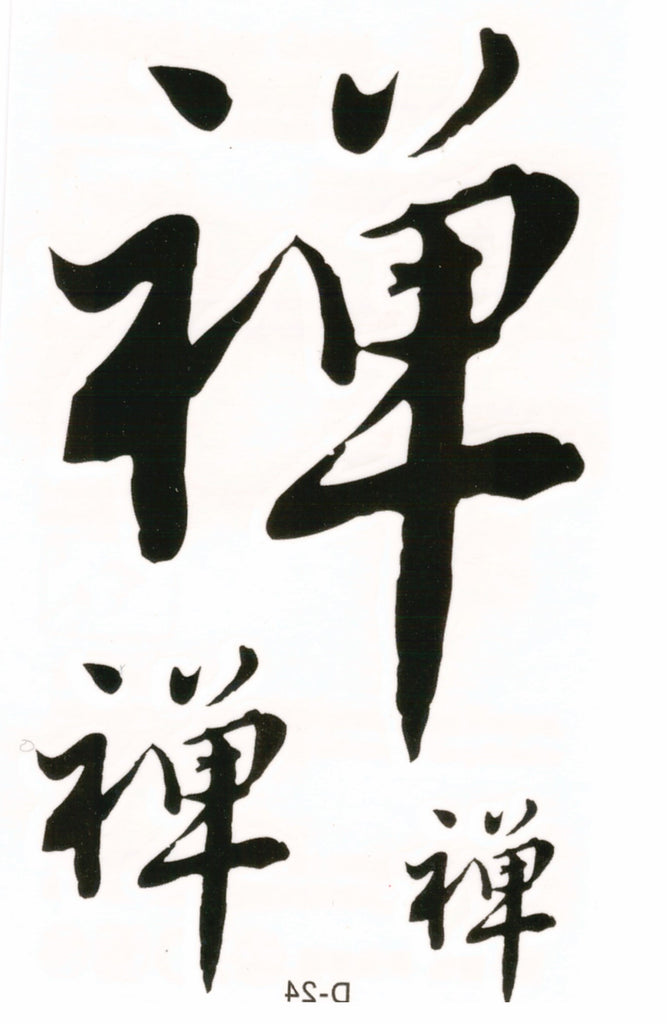 禅
禅
禅
D-24